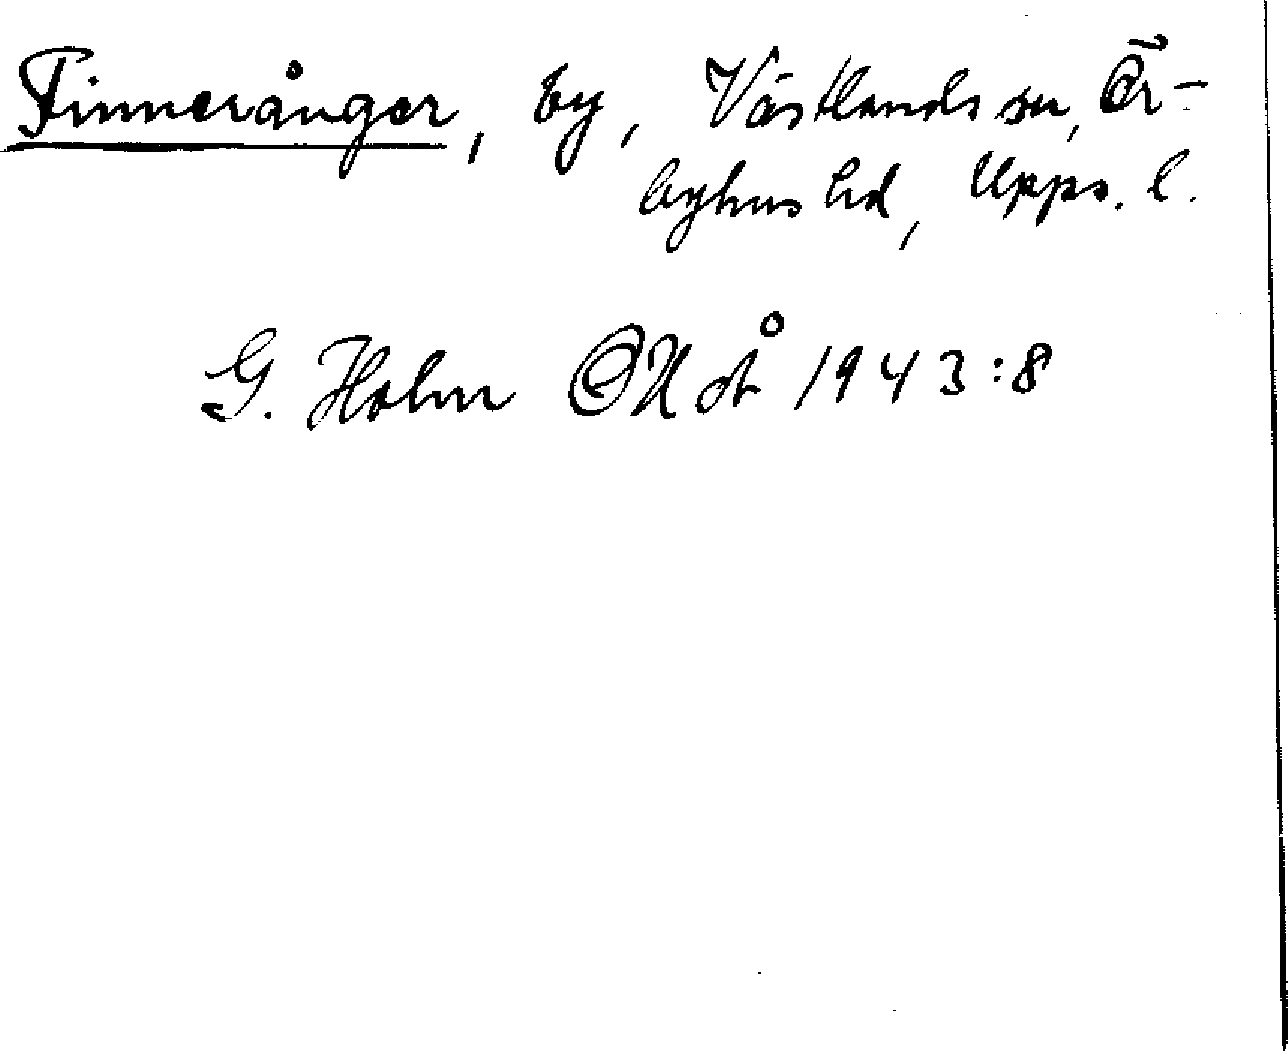 Finnerånger, by, Västlands sn, Ör-
byhus hd, Upps. l.
G. Holm OUÅ 1943:8